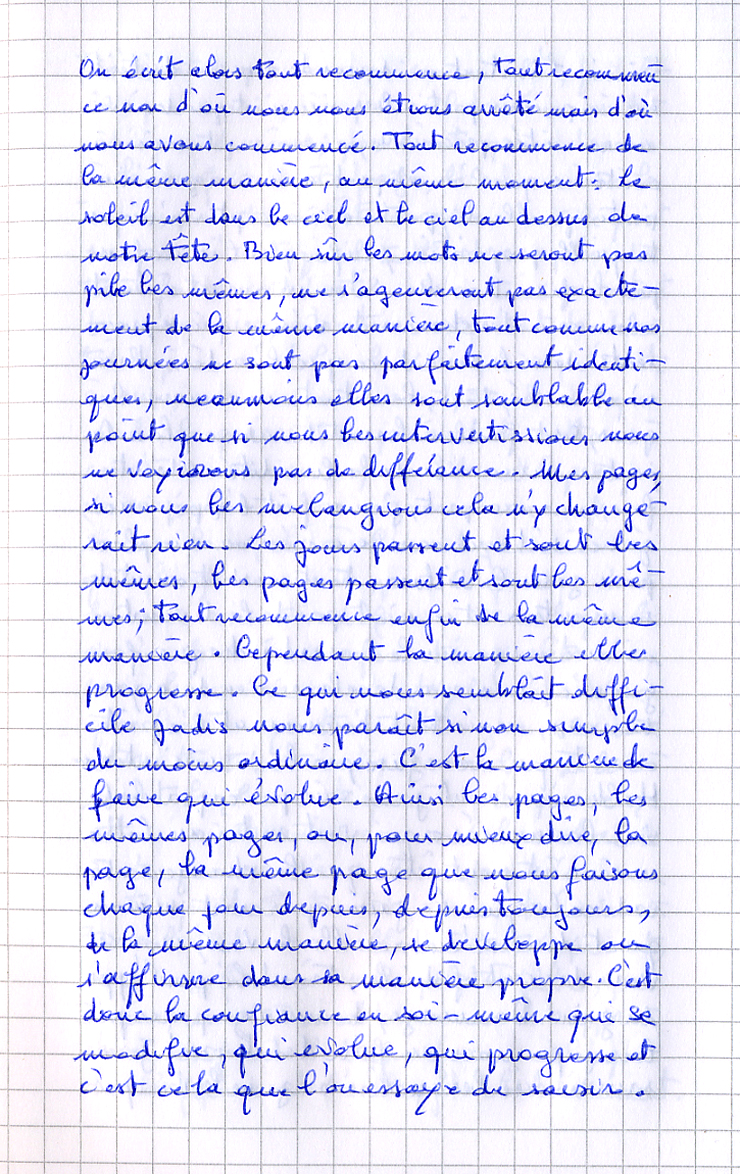 On écrit alors tout recommence, tout recommen
ce non d'où nous nous étions arrêté mais d'où
nous avons commencé. Tout recommence de
la même manière, au même moment: le
soleil est dans le ciel et le ciel au dessus de
notre tête. Bien sûr les mots ne seront pas
pile les mêmes, ne s'agenceront pas exacte-
ment de la même manière, tout comme nos
journées ne sont pas parfaitement identi-
ques, neanmoins elles sont semblable au
point que si nous les intervertissions nous
ne voyions pas de différance. Mes pages,
si nous les melangions cela n'y change-
rait rien. Les jours passent et sont les
mêmes, les pages passent et sont les mê-
mes; tout recommence enfin de la même
manière. Cependant la manière elle
progresse. Ce qui nous semblait diffi-
cile jadis nous paraît sinon simple
du moins ordinaire. C'est la manière de
faire qui évolue. Ainsi les pages, les
mêmes pages, ou, pour mieux dire, la
page, la même page que nous faisons
chaque jour depuis, depuis toujours,
de la même manière, se developpe ou
s'affirme dans sa manière propre. C'est
donc la confiance en soi-même que se
modifie, qui evolue, qui progresse et
c'est cela que l'on essaye de saisir.